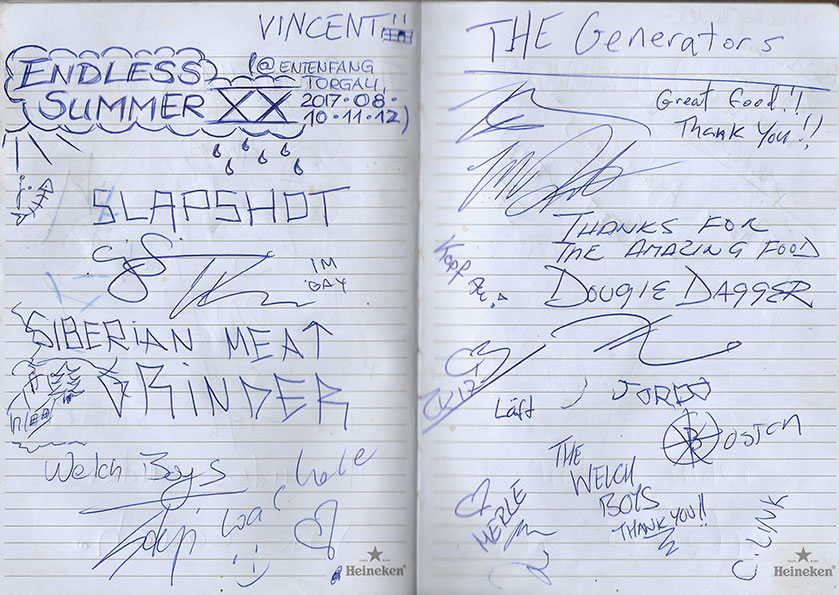 VINCENT
ENDLESS
SUMMER XX
(@ ENTENFANG
TORGAU,
2017·08·
10·11·12)
SLAPSHOT
IM
GAY
SIBERIAN MEAT
GRINDER
Welch Boys
Heineken
THE Generators
Great food!!
Thank You!!
THANKS FOR
THE AMAZING FOOD
DOUGIE DAGGER
Läft
JORDO
BOSTON
THE
WELCH
BOYS
THANK YOU!!
MERLE
C. LINK
Heineken